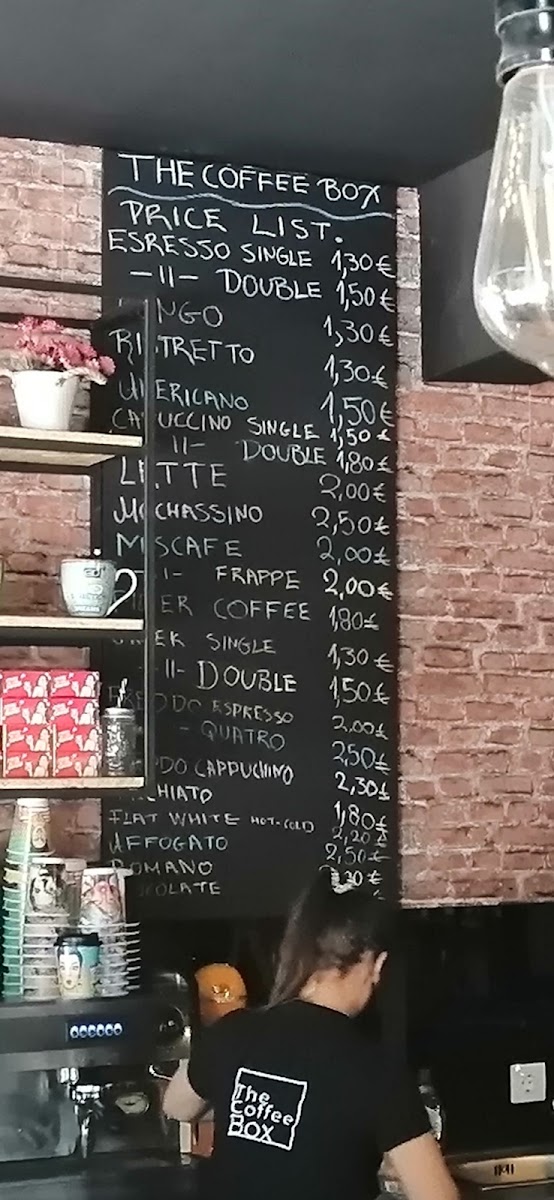 THE COFFEE BOX
PRICE LIST.
ESRESSO SINGLE 1,30€
-11- DOUBLE 1,50€
NGO 1,30€
RI TRETTO 1,30€
AMERICANO 1,50€
CAPUCCINO SINGLE 1,50€
11- DOUBLE 1,80€
LATTE 2,00€
MOCHASSINO 2,50€
NESCAFE 2,00€
FRAPPE 2,00€
COFFEE 1,80€
SINGLE 1,30€
-11- DOUBLE 1,50€
ESPRESSO 2,00€
- QUATRO 2,50€
DO CAPPUCHINO 2,30€
CHIATO 1,80€
FLAT WHITE HOT-COLD 2,20€
AFFOGATO 2,50€
ROMANO 30€
OLATE
The
Coffee
BOX